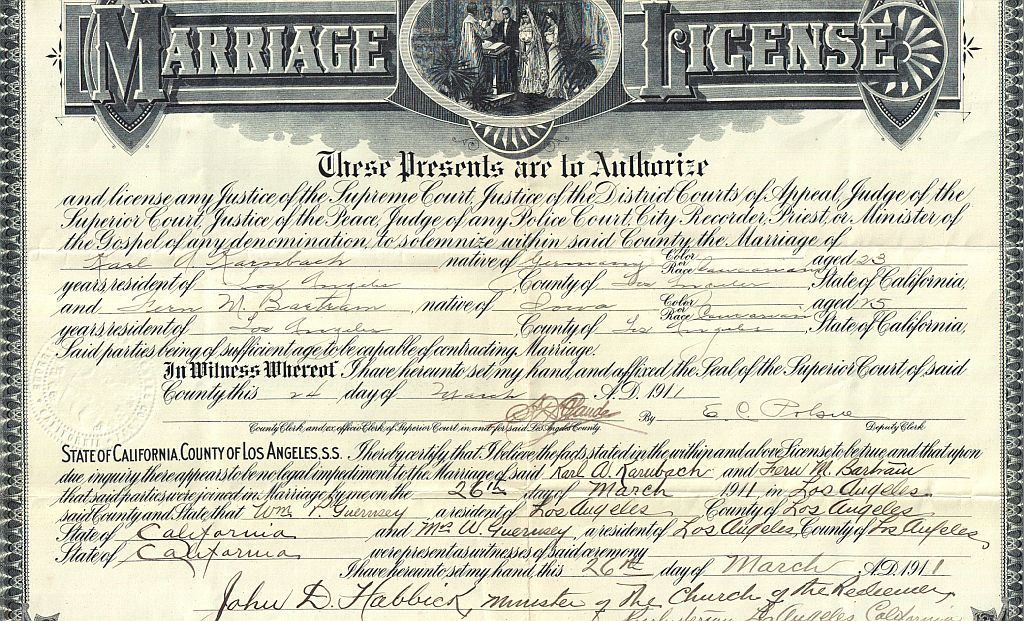 MARRIAGE LICENSE
These Presents are to Authorize
and license any Justice of the Supreme Court, Justice of the District Courts of Appeal, Judge of the
Superior Court, Justice of the Peace, Judge of any Police Court, City Recorder, Priest, or Minister of
the Gospel of any denomination, to solemnize within said County, the Marriage of
Karl A. Karnbach native of Germany Color or Race Caucasian aged 23
years resident of Los Angeles, County of Los Angeles, State of California,
and Fern M. Bartram, native of Iowa Color or Race Caucasian aged 25
years resident of Los Angeles, County of Los Angeles, State of California,
Said parties being of sufficient age to be capable of contracting Marriage.
In Witness Whereof I have hereunto set my hand, and affixed the Seal of the Superior Court of said
County this 24 day of March A.D. 1911
By E C.
County Clerk and ex officio Clerk of Superior Court in and for said Los Angeles County Deputy Clerk
STATE OF CALIFORNIA, COUNTY OF LOS ANGELES, S.S. I hereby certify, that I believe the facts stated in the within and above License to be true and that upon
due inquiry there appears to be no legal impediment to the Marriage of said Karl A. Karnbach and Fern M. Bartram
that said parties were joined in Marriage by me on the 26th day of March 1911, in Los Angeles
said County and State that Wm P. Guernsey a resident of Los Angeles County of Los Angeles
State of California and Mrs W. Guernsey, a resident of Los Angeles, County of Los Angeles,
State of California were present as witnesses of said ceremony
I have hereunto set my hand, this 26th day of March A.D. 1911
John D. Habbick, Minister of The Church of the Redeemer,
Presbyterian Los Angeles California